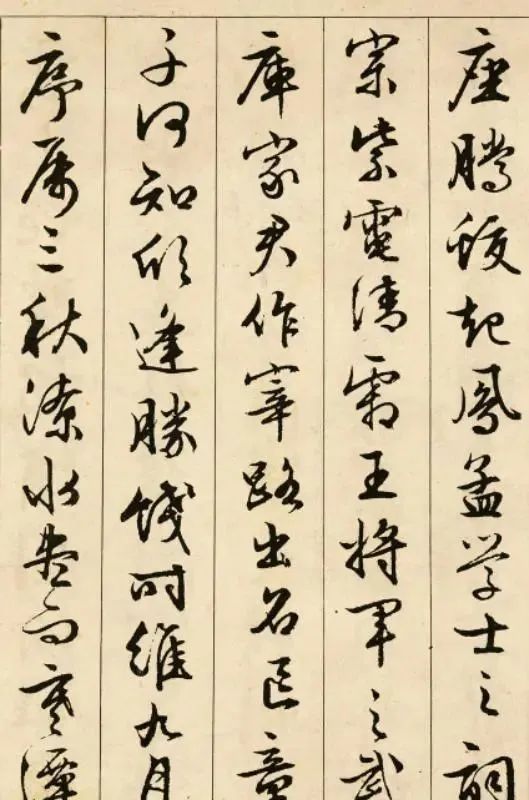 座騰蛟起鳳孟學士之詞
宗紫電清霜王將軍之武
庫家君作宰路出名區童
子何知躬逢勝餞時維九月
序屬三秋潦水盡而寒潭